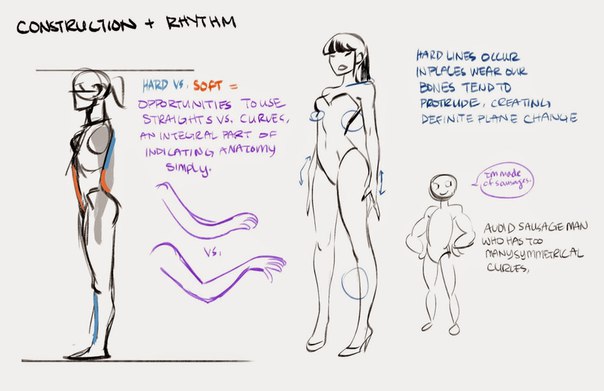 CONSTRUCTION + RHYTHM
HARD VS. SOFT =
OPPORTUNITIES TO USE
STRAIGHTS VS. CURVES,
AN INTEGRAL PART OF
INDICATING ANATOMY
SIMPLY.
VS.
HARD LINES OCCUR
IN PLACES WEAR OUR
BONES TEND TO
PROTRUDE, CREATING
DEFINITE PLANE CHANGE
I'm made
of sausages.
AVOID SAUSAGE MAN
WHO HAS TOO
MANY SYMMETRICAL
CURVES.